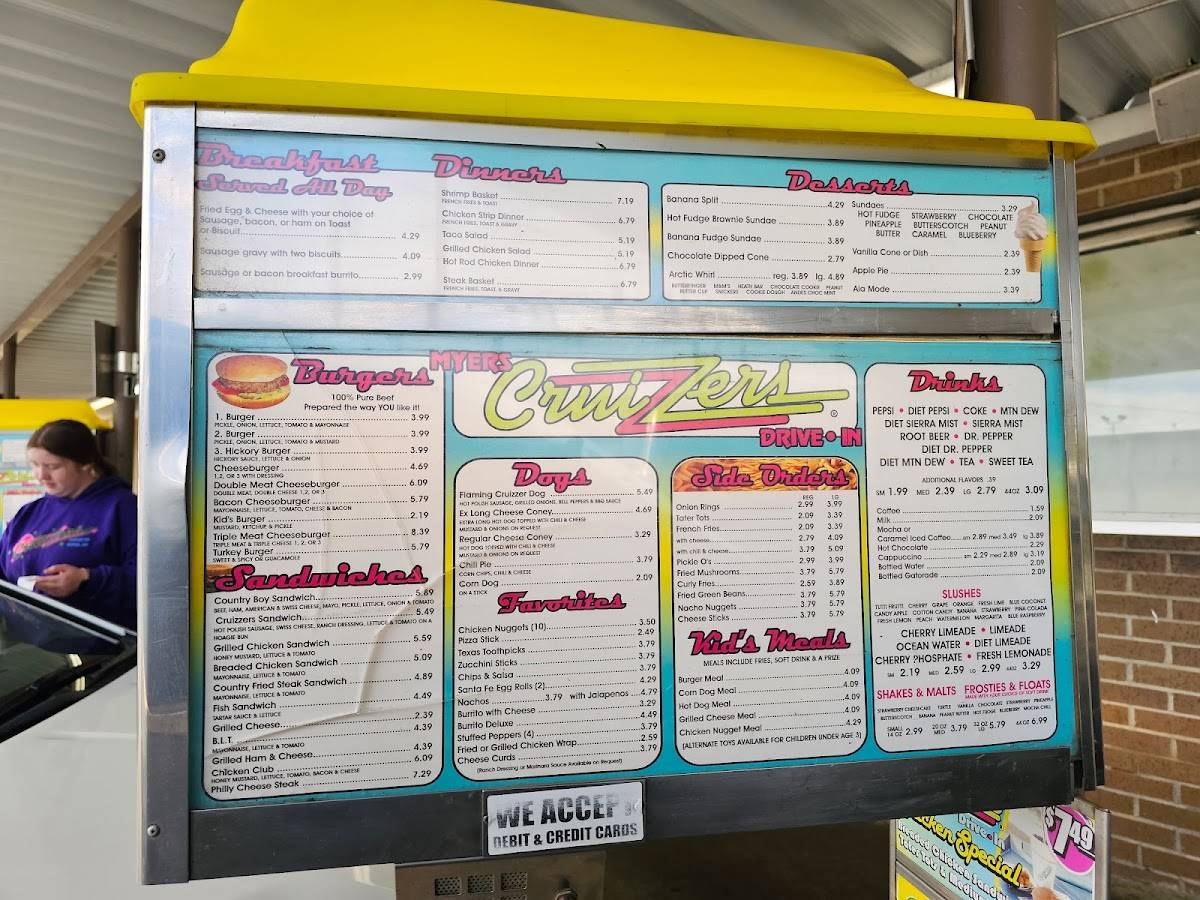 Breakfast
Served All Day
Fried Egg & Cheese with your choice of
Sausage, bacon, or ham on Toast
or Biscuit 4.29
Sausage gravy with two biscuits 4.09
Sausage or bacon breakfast burrito 2.99
Dinners
Shrimp Basket 7.19
FRENCH FRIES & TOAST
Chicken Strip Dinner 6.79
FRENCH FRIES, TOAST & GRAVY
Taco Salad 5.19
Grilled Chicken Salad 5.19
Hot Rod Chicken Dinner 6.79
Steak Basket 6.79
FRENCH FRIES, TOAST, & GRAVY
Desserts
Banana Split 4.29
Hot Fudge Brownie Sundae 3.89
Banana Fudge Sundae 3.89
Chocolate Dipped Cone 2.79
Arctic Whirl reg. 3.89 lg. 4.89
BUTTERFINGER M&M'S HEATH BAR CHOCOLATE COOKIE PEANUT
BUTTER CUP SNICKERS COOKIE DOUGH ANDES CHOC MINT
Sundaes 3.29
HOT FUDGE STRAWBERRY CHOCOLATE
PINEAPPLE BUTTERSCOTCH PEANUT
BUTTER CARAMEL BLUEBERRY
Vanilla Cone or Dish 2.39
Apple Pie 2.39
Ala Mode 3.39
Burgers
100% Pure Beef
Prepared the way YOU like it!
1. Burger 3.99
PICKLE, ONION, LETTUCE, TOMATO & MAYONNAISE
2. Burger 3.99
PICKLE, ONION, LETTUCE, TOMATO & MUSTARD
3. Hickory Burger 3.99
HICKORY SAUCE, LETTUCE & ONION
Cheeseburger 4.69
1,2, OR 3 WITH DRESSING
Double Meat Cheeseburger 6.09
DOUBLE MEAT, DOUBLE CHEESE 1,2, OR 3
Bacon Cheeseburger 5.79
MAYONNAISE, LETTUCE, TOMATO, CHEESE & BACON
Kid's Burger 2.19
MUSTARD, KETCHUP & PICKLE
Triple Meat Cheeseburger 8.39
TRIPLE MEAT & TRIPLE CHEESE 1, 2, OR 3
Turkey Burger 5.79
SWEET & SPICY OR GUACAMOLE
Sandwiches
Country Boy Sandwich 5.89
BEEF, HAM, AMERICAN & SWISS CHEESE, MAYO, PICKLE, LETTUCE, ONION & TOMATO
Cruizzers Sandwich 5.49
HOT POLISH SAUSAGE, SWISS CHEESE, RANCH DRESSING, LETTUCE & TOMATO ON A
HOAGIE BUN
Grilled Chicken Sandwich 5.59
HONEY MUSTARD, LETTUCE & TOMATO
Breaded Chicken Sandwich 5.09
MAYONNAISE, LETTUCE & TOMATO
Country Fried Steak Sandwich 4.89
MAYONNAISE, LETTUCE & TOMATO
Fish Sandwich 4.49
TARTAR SAUCE & LETTUCE
Grilled Cheese 2.39
B.L.T. 4.39
MAYONNAISE, LETTUCE & TOMATO
Grilled Ham & Cheese 4.39
Chicken Club 6.09
HONEY MUSTARD, LETTUCE, TOMATO, BACON & CHEESE
Philly Cheese Steak 7.29
MYERS
Cruizzers ®
DRIVE-IN
Dogs
Flaming Cruizzer Dog 5.49
HOT POLISH SAUSAGE, GRILLED ONIONS, BELL PEPPERS & BBQ SAUCE
Ex Long Cheese Coney 4.69
EXTRA LONG HOT DOG TOPPED WITH CHILI & CHEESE
MUSTARD & ONIONS ON REQUEST
Regular Cheese Coney 3.29
HOT DOG TOPPED WITH CHILI & CHEESE
MUSTARD & ONIONS ON REQUEST
Chili Pie 3.79
CORN CHIPS, CHILI & CHEESE
Corn Dog 2.09
ON A STICK
Favorites
Chicken Nuggets (10) 3.50
Pizza Stick 2.49
Texas Toothpicks 3.79
Zucchini Sticks 3.79
Chips & Salsa 3.79
Santa Fe Egg Rolls (2) 4.29
Nachos 3.79 with Jalapenos 4.79
Burrito with Cheese 3.29
Burrito Deluxe 4.49
Stuffed Peppers (4) 3.79
Fried or Grilled Chicken Wrap 2.59
Cheese Curds 3.79
(Ranch Dressing or Marinara Sauce Available on Request)
Side Orders
REG LG
Onion Rings 2.99 3.99
Tater Tots 2.09 3.39
French Fries 2.09 3.39
with cheese 2.79 4.09
with chili & cheese 3.79 5.09
Pickle O's 2.99 3.99
Fried Mushrooms 3.79 5.79
Curly Fries 2.59 3.89
Fried Green Beans 3.79 5.79
Nacho Nuggets 3.79 5.79
Cheese Sticks 3.79 5.79
Kid's Meals
MEALS INCLUDE FRIES, SOFT DRINK & A PRIZE
Burger Meal 4.09
Corn Dog Meal 4.09
Hot Dog Meal 4.09
Grilled Cheese Meal 4.09
Chicken Nugget Meal 4.29
(ALTERNATE TOYS AVAILABLE FOR CHILDREN UNDER AGE 3)
Drinks
PEPSI • DIET PEPSI • COKE • MTN DEW
DIET SIERRA MIST • SIERRA MIST
ROOT BEER • DR. PEPPER
DIET DR. PEPPER
DIET MTN DEW • TEA • SWEET TEA
ADDITIONAL FLAVORS .39
SM 1.99 MED 2.39 LG 2.79 44OZ 3.09
Coffee 1.59
Milk 2.09
Mocha or
Caramel Iced Coffee sm 2.89 med 3.49 lg 3.89
Hot Chocolate 2.29
Cappuccino sm 2.29 med 2.89 lg 3.19
Bottled Water 2.09
Bottled Gatorade 2.09
SLUSHES
TUTTI FRUTTI CHERRY GRAPE ORANGE FRESH LIME BLUE COCONUT
CANDY APPLE COTTON CANDY BANANA STRAWBERRY PINA COLADA
FRESH LEMON PEACH WATERMELON MARGARITA BLUE RASPBERRY
CHERRY LIMEADE • LIMEADE
OCEAN WATER • DIET LIMEADE
CHERRY PHOSPHATE • FRESH LEMONADE
SM 2.19 MED 2.59 LG 2.99 44OZ 3.29
SHAKES & MALTS FROSTIES & FLOATS
MADE WITH YOUR CHOICE OF SOFT DRINK
STRAWBERRY CHEESECAKE TURTLE VANILLA CHOCOLATE STRAWBERRY PINEAPPLE
BUTTERSCOTCH BANANA PEANUT BUTTER HOT FUDGE BLUEBERRY MOCHA CHILL
SMALL 14 OZ 2.99 20 OZ MED 3.79 32 OZ LG 5.79 44 OZ 6.99
WE ACCEPT
DEBIT & CREDIT CARDS
Drive-In
Chicken Special
$7.49